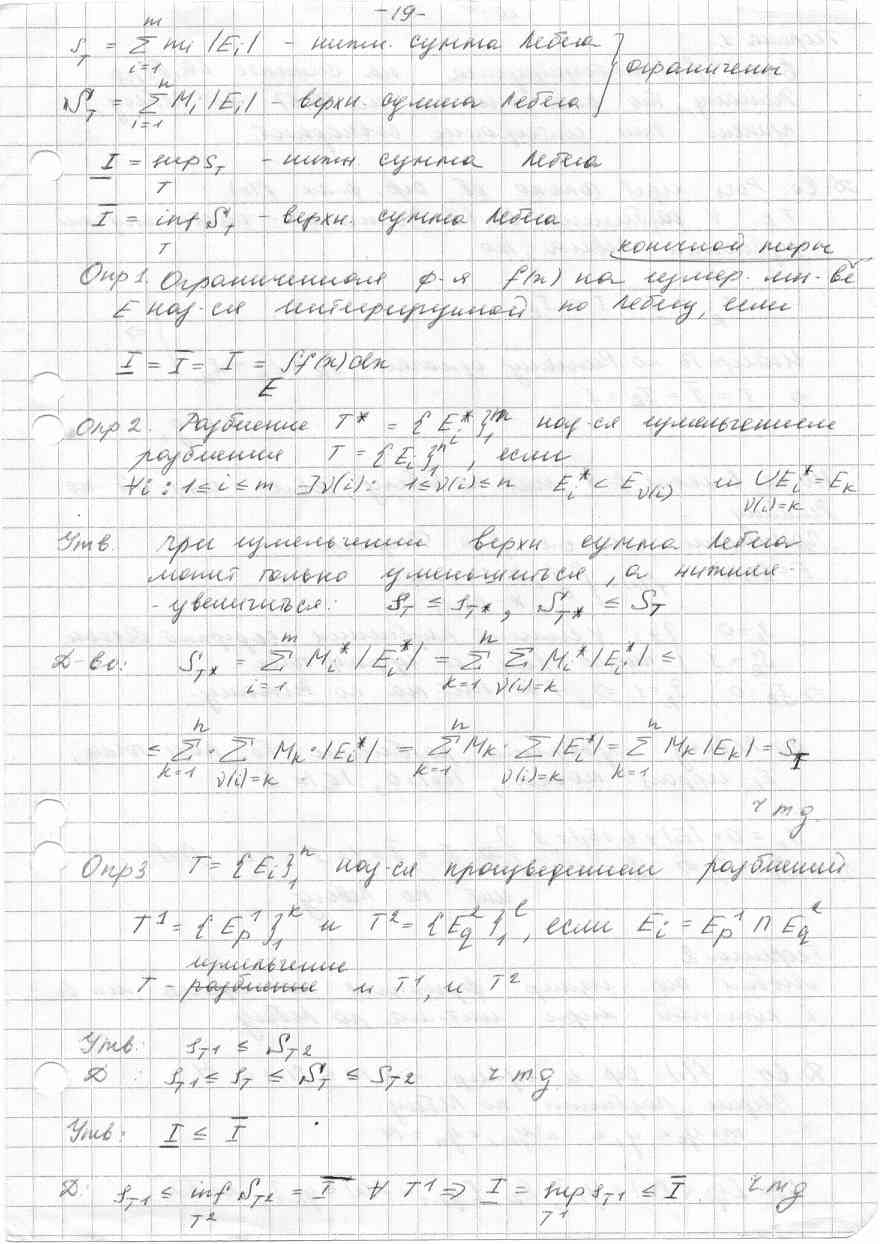 -19-
s_T = Σ_{i=1}^{m} m_i |E_i| - нижн. сумма Лебега
S_T = Σ_{i=1}^{n} M_i |E_i| - верхн. сумма Лебега } ограничены
I̲ = sup_T s_T - нижн сумма Лебега
I̅ = inf_T S_T - верхн. сумма Лебега
конечной меры
Опр 1. Ограниченная ф-я f(x) на измер. мн-ве
E наз-ся интегрируемой по Лебегу, если
I̲ = I̅ = I = ∫_E f(x)dx
Опр 2. Разбиение T* = {E_i*}_1^m наз-ся измельчением
разбиения T = {E_i}_1^n, если
∀i: 1≤i≤m ∃ν(i): 1≤ν(i)≤n E_i* ⊂ E_{ν(i)} и ∪_{ν(i)=k} E_i* = E_k
Утв. при измельчении верхн сумма Лебега
может только уменьшиться, а нижняя -
- увеличиться: s_T ≤ s_{T*}, S_{T*} ≤ S_T
Д-во: S_{T*} = Σ_{i=1}^{m} M_i* |E_i*| = Σ_{k=1}^{n} Σ_{ν(i)=k} M_i* |E_i*| ≤
≤ Σ_{k=1}^{n} · Σ_{ν(i)=k} M_k · |E_i*| = Σ_{k=1}^{n} M_k · Σ_{ν(i)=k} |E_i*| = Σ_{k=1}^{n} M_k |E_k| = S_T
ч т д.
Опр 3 T = {E_i}_1^n наз-ся произведением разбиений
T¹ = {E_p¹}_1^k и T² = {E_q²}_1^l, если E_i = E_p¹ ∩ E_q²
измельчение
T - разбиение и T¹, и T²
Утв: s_{T1} ≤ S_{T2}
Д : s_{T1} ≤ s_T ≤ S_T ≤ S_{T2} ч т д.
Утв: I̲ ≤ I̅
Д: s_{T1} ≤ inf_{T²} S_{T2} = I̅ ∀ T¹ ⇒ I̲ = sup_{T¹} s_{T1} ≤ I̅ ч т д